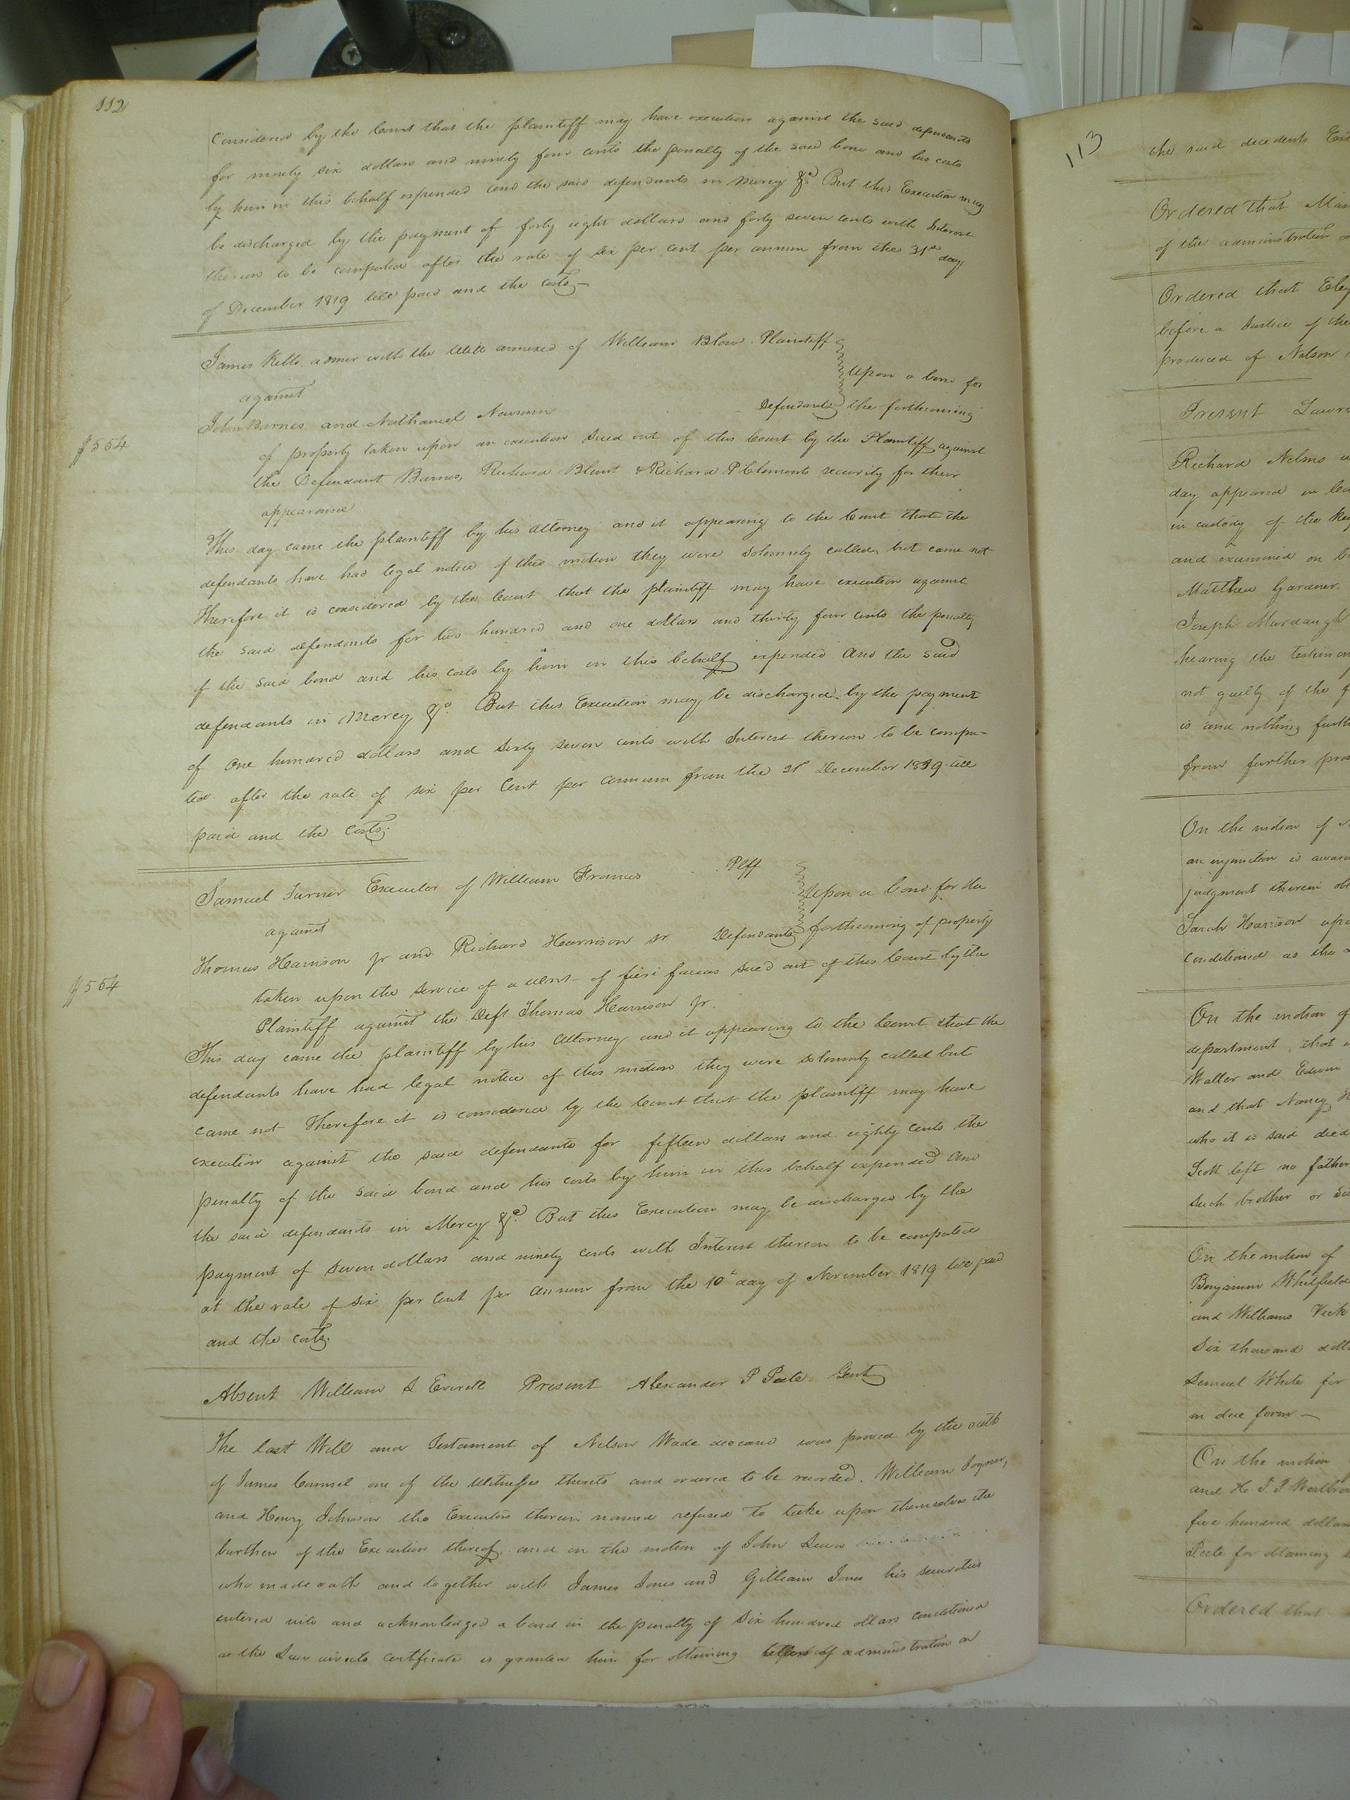 112
Considered by the Court that the plaintiff may have execution against the said defendants
for ninety six dollars and ninety four cents the penalty of the said bond and his costs
by him in this behalf expended and the said defendants in Mercy &c. But this Execution may
be discharged by the payment of forty eight dollars and forty seven cents with Interest
thereon to be computed after the rate of six per cent per annum from the 31st day
of December 1819 till paid and the costs.
James Kello admor with the Will annexed of William Blow Plaintiff
against
Upon a bond for
John Barnes and Nathaniel Newsum Defendants the forthcoming
$554
of property taken upon an execution Sued out of this Court by the Plaintiff against
the Defendant Barnes, Richard Blunt & Richard P Clements security for their
appearance
This day came the plaintiff by his attorney and it appearing to the Court that the
defendants have had legal notice of this motion they were solemnly called but came not
Therefore it is considered by the Court that the plaintiff may have execution against
the said defendants for two hundred and one dollars and thirty four cents the penalty
of the said bond and his costs by him in this behalf expended And the said
defendants in Mercy &c. But this Execution may be discharged by the payment
of One hundred dollars and Sixty seven cents with Interest thereon to be compu-
ted after the rate of six per Cent per annum from the 31st December 1819 till
paid and the Costs.
Samuel Turner Executor of William Francis Plff
Upon a bond for the
against
Thomas Harrison Jr and Richard Harrison Sr Defendants forthcoming of property
$554
taken upon the service of a writ of fieri facias sued out of this Court by the
Plaintiff against the Deft Thomas Harrison Jr.
This day came the plaintiff by his Attorney and it appearing to the Court that the
defendants have had legal notice of this motion they were solemnly called but
came not Therefore it is considered by the Court that the plaintiff may have
execution against the said defendants for fifteen dollars and eighty cents the
penalty of the said bond and his costs by him in this behalf expended And
the said defendants in Mercy &c. But this Execution may be discharged by the
payment of Seven dollars and ninety cents with Interest thereon to be computed
at the rate of six per Cent per Annum from the 10th day of November 1819 till paid
and the costs.
Absent William S Everett Present Alexander P Peete Gent
The last Will and Testament of Nelson Wade deceased was proved by the oath
of James Council one of the Witnesses thereto and ordered to be recorded. William Joyner,
and Henry Johnson the Executors therein named refused to take upon themselves the
burthen of the Execution thereof. and on the motion of John
who made oath and together with James Jones and Gilliam Jones his securities
entered into and acknowledged a bond in the penalty of Six hundred dollars conditioned
as the Law directs certificate is granted him for obtaining letters of administration on
113
the said decedents
Ordered that
of the administration
Ordered that
before a Justice of the
produced of Nelson
Present
Richard Nelms
day appeared in
in custody of the
and examined on
Matthew Gardner
Joseph Murdaugh
hearing the testimony
not guilty of the
is and nothing
from further
On the motion of
an injunction is
judgment therein
Sarah Harrison
conditioned as the
On the motion of
department, that
Walter and Edwin
and that Nancy
who it is said died
Scott left no father
such brother or
On the motion of
Benjamin Whitfield
and Williams Vick
Six thousand
Samuel White for
in due form
On the motion
and
five hundred dollars
Peete for obtaining
Ordered that